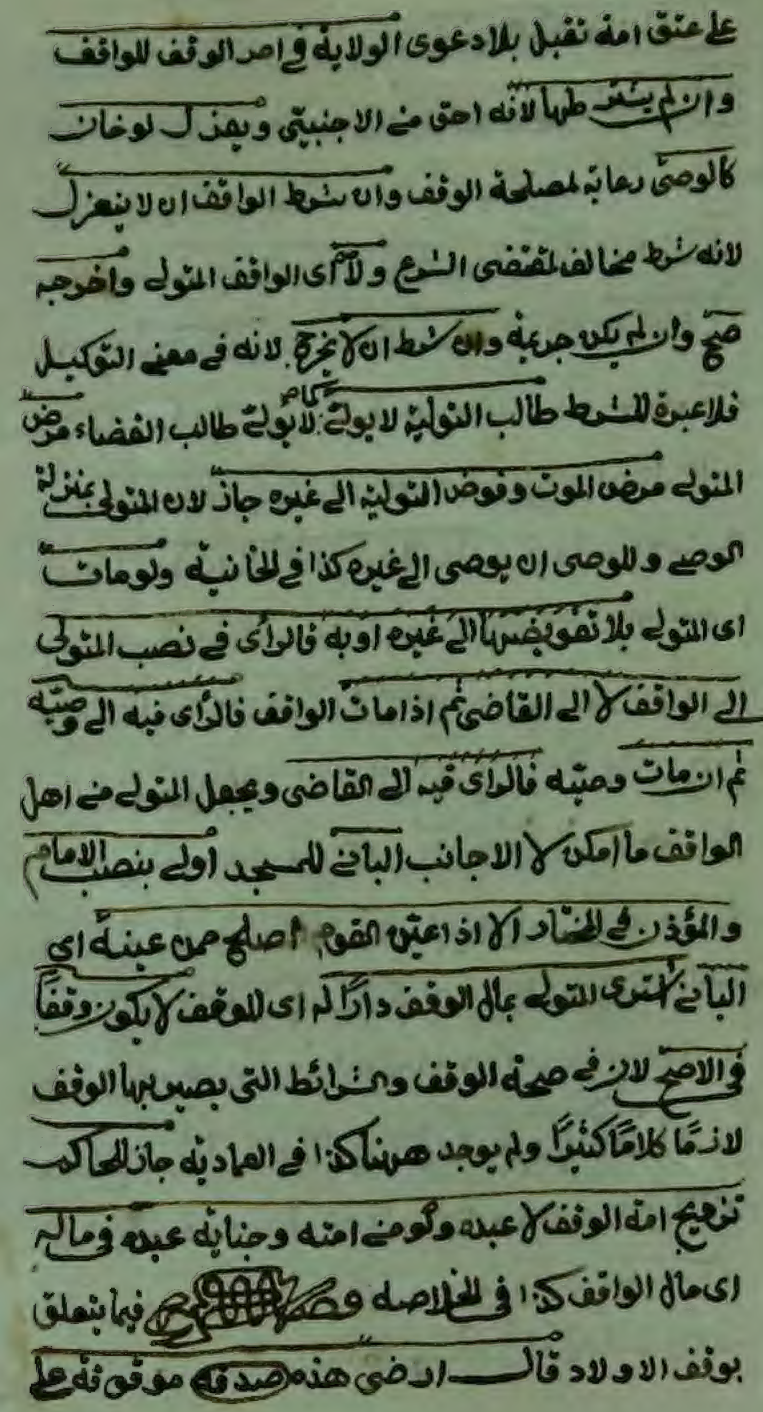 على عتق امة تقبل بلا دعوى الولاية في امر الوقف للواقف
وان لم يشترطها لانه احق من الاجنبي ويعزل لو خان
كالوصي رعاية لمصلحة الوقف وان شرط الواقف ان لا ينعزل
لانه شرط مخالف لمقتضى الشرع ولا اى الواقف المتولى واخرجه
صح وان لم يكن جريمة وان شرط ان لا يخرج لانه في معنى التوكيل
فلا عبرة للشرط طالب التولية لا يولى كما لا يولى طالب القضاء مرض
المتولى مرض الموت وفوض التولية الى غيره جاز لان المتولى بمنزلة
الوصى وللوصى ان يوصى الى غيره كذا في الخانية ولو مات
اى المتولى بلا تفويضها الى غيره اوبه فالرأى في نصب المتولى
الى الواقف لا الى القاضى ثم اذا مات الواقف فالرأى فيه الى وصيه
ثم ان مات وصيه فالرأى فيه الى القاضى ويجعل المتولى من اهل
الواقف ما امكن لا الاجانب البانى للمسجد اولى بنصب الامام
والمؤذن في المختار الا اذا عين القوم اصلح ممن عينه اى
البانى اشترى المتولى بمال الوقف دارا له اى للوقف لا يكون وقفا
في الاصح لان في صحة الوقف والشرائط التى يصير بها الوقف
لازمًا كلامًا كثيرًا ولم يوجد ههنا كذا في العمادية جاز للحاكم
تزويج امة الوقف لا عبده ولو من امته وجناية عبده في ماله
اى مال الواقف كذا في الخلاصه فيما يتعلق
بوقف الاولاد قال ارضى هذه صدقة موقوفة على